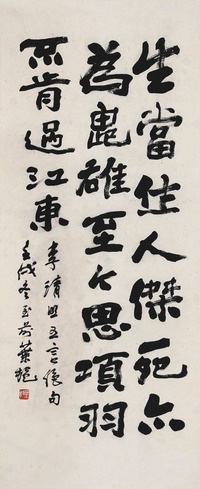 生當作人傑死亦
為鬼雄至今思項羽
不肯過江東
李清照五言絕句
壬戌冬至前葉挺